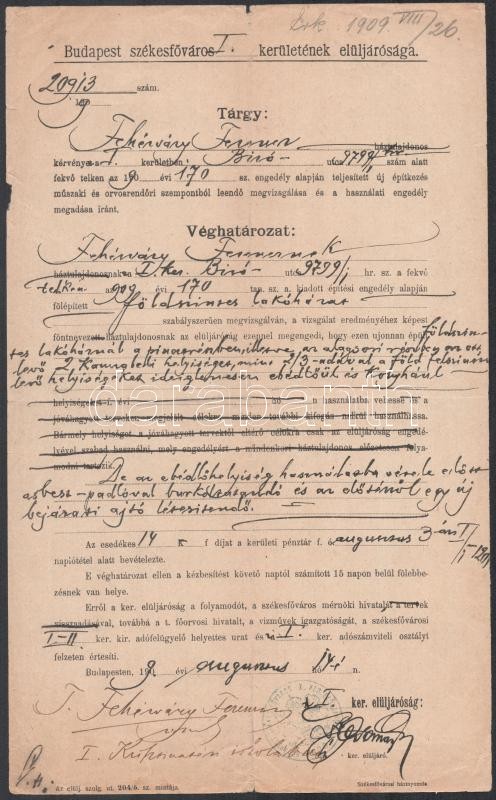 Érk. 1909 VIII/26.
Budapest székesfőváros I. kerületének elüljárósága.
20913 szám.
190
Tárgy:
Fehérváry Ferenc háztulajdonos
kérvénye a I. kerületben Biró utca 9799/ szám alatt
fekvő telken az 190 évi 170 sz. engedély alapján teljesített új építkezés
műszaki és orvosrendőri szempontból leendő megvizsgálása és a használati engedély
megadása iránt,
Véghatározat:
Fehérváry Ferencnek
háztulajdonosnak a I. ker. Biró utca 9799/ hr. sz. a fekvő
telken 909 évi 170 tan. sz. a. kiadott építési engedély alapján
fölépített földszintes lakóházat
szabályszerűen megvizsgálván, a vizsgálat eredményéhez képest
fontnevezett háztulajdonosnak az elüljáróság ezennel megengedi, hogy ezen ujonnan épített földszin-
tes lakóháznál a pinczerészben, illetve az alagsori részben az ott
levő 2 helyiséget, mint 2/3-adával a föld felszine
levő helyiségeket ideiglenesen ebédlőül és konyhául
helyiségeket f. évi hó n használatba vehesse és a
jóváhagyott terveken megjelölt célokra minden további kifogás nélkül használhassa.
Bármely helyiséget a jóváhagyott tervektől eltérő célokra csak az elüljáróság engedé-
lyével szabad használni, mely engedélyért a mindenkori háztulajdonos előzetesen folya-
modni tartozik.
De az ebédlőhelyiség használatba vétele előtt
asbest-padlóval burkolandó és az előtérről egy új
bejárati ajtó létesítendő.
Az esedékes 14 K f díjat a kerületi pénztár f. é. augusztus 3-án I/
napiótétel alatt bevételezte.
E véghatározat ellen a kézbesítést követő naptól számított 15 napon belül fölebbe-
zésnek van helye.
Erről a ker. elüljáróság a folyamodót, a székesfőváros mérnöki hivatalát a tervek
visszaadásával, továbbá a t. főorvosi hivatalt, a vizművek igazgatóságát, a székesfővárosi
I-II ker. kir. adófelügyelő helyettes urat és a I. ker. adószámviteli osztályt
felzeten értesíti.
Budapesten, 190 9 évi augusztus hó 14-én.
I. ker. elüljáróság:
T. Fehérváry Ferencz
ker. elüljáró.
Az elölj. szolg. ut. 204/5. sz. mintája.
Székesfővárosi házinyomda
darabanth